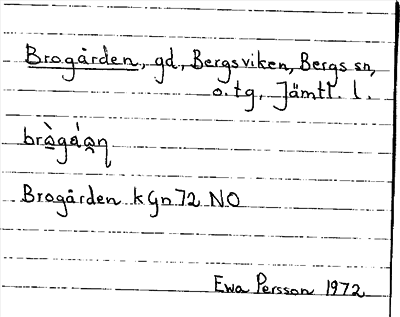 Brogården, gd, Bergsviken, Bergs sn,
o. tg, Jämtl. l.
Brogården kGn72 NO
Ewa Persson 1972